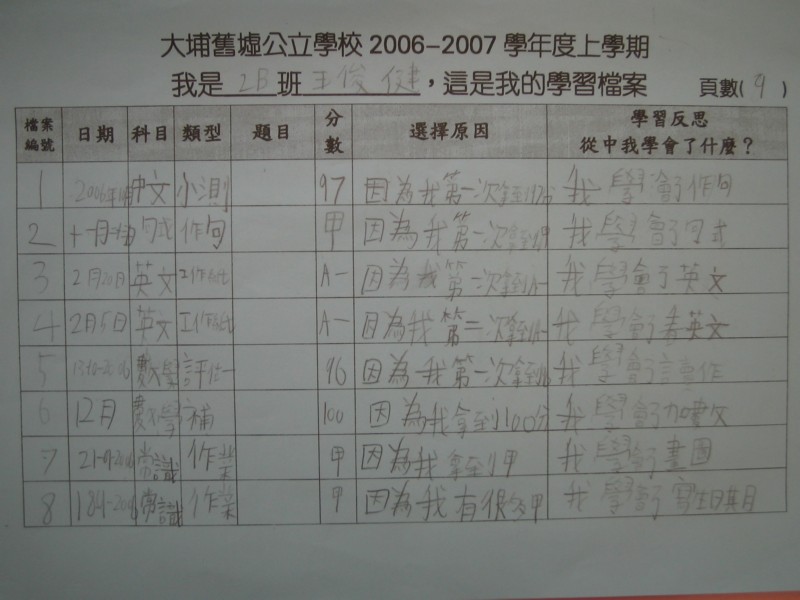 大埔舊墟公立學校 2006-2007 學年度上學期
我是 2B 班 王俊健，這是我的學習檔案 頁數( 9 )
檔案編號 日期 科目 類型 題目 分數 選擇原因 學習反思 從中我學會了什麼？
1 中文 小測 97 因為我第一次拿到97分 我學會作句
2 作句 甲 因為我第一次拿到甲 我學會了句式
3 2月20日 英文 工作紙 A- 因為我第一次拿到A- 我學會了英文
4 2月5日 英文 工作紙 A- 因為我第二次拿到A- 我學會了英文
5 數學 評估一 96 因為我第一次拿到96 我學會了
6 12月 數學 補 100 因為我拿到100分 我學會了加數文
7 常識 作業 甲 因為我拿到甲 我學會了畫圖
8 常識 作業 甲 因為我有很多甲 我學會了寫生日期月